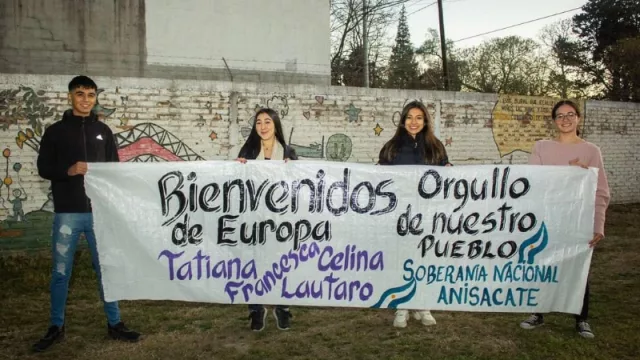 Bienvenidos
de Europa
Tatiana Francesca Celina
Lautaro
Orgullo
de nuestro
PUEBLO
SOBERANÍA NACIONAL
ANISACATE